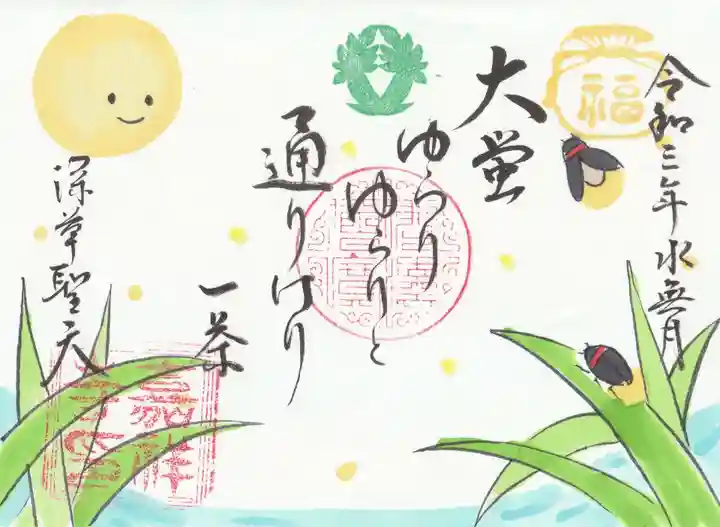 令和三年水無月
福
大蛍
ゆらり
ゆらりと
通りけり
一茶
深草聖天